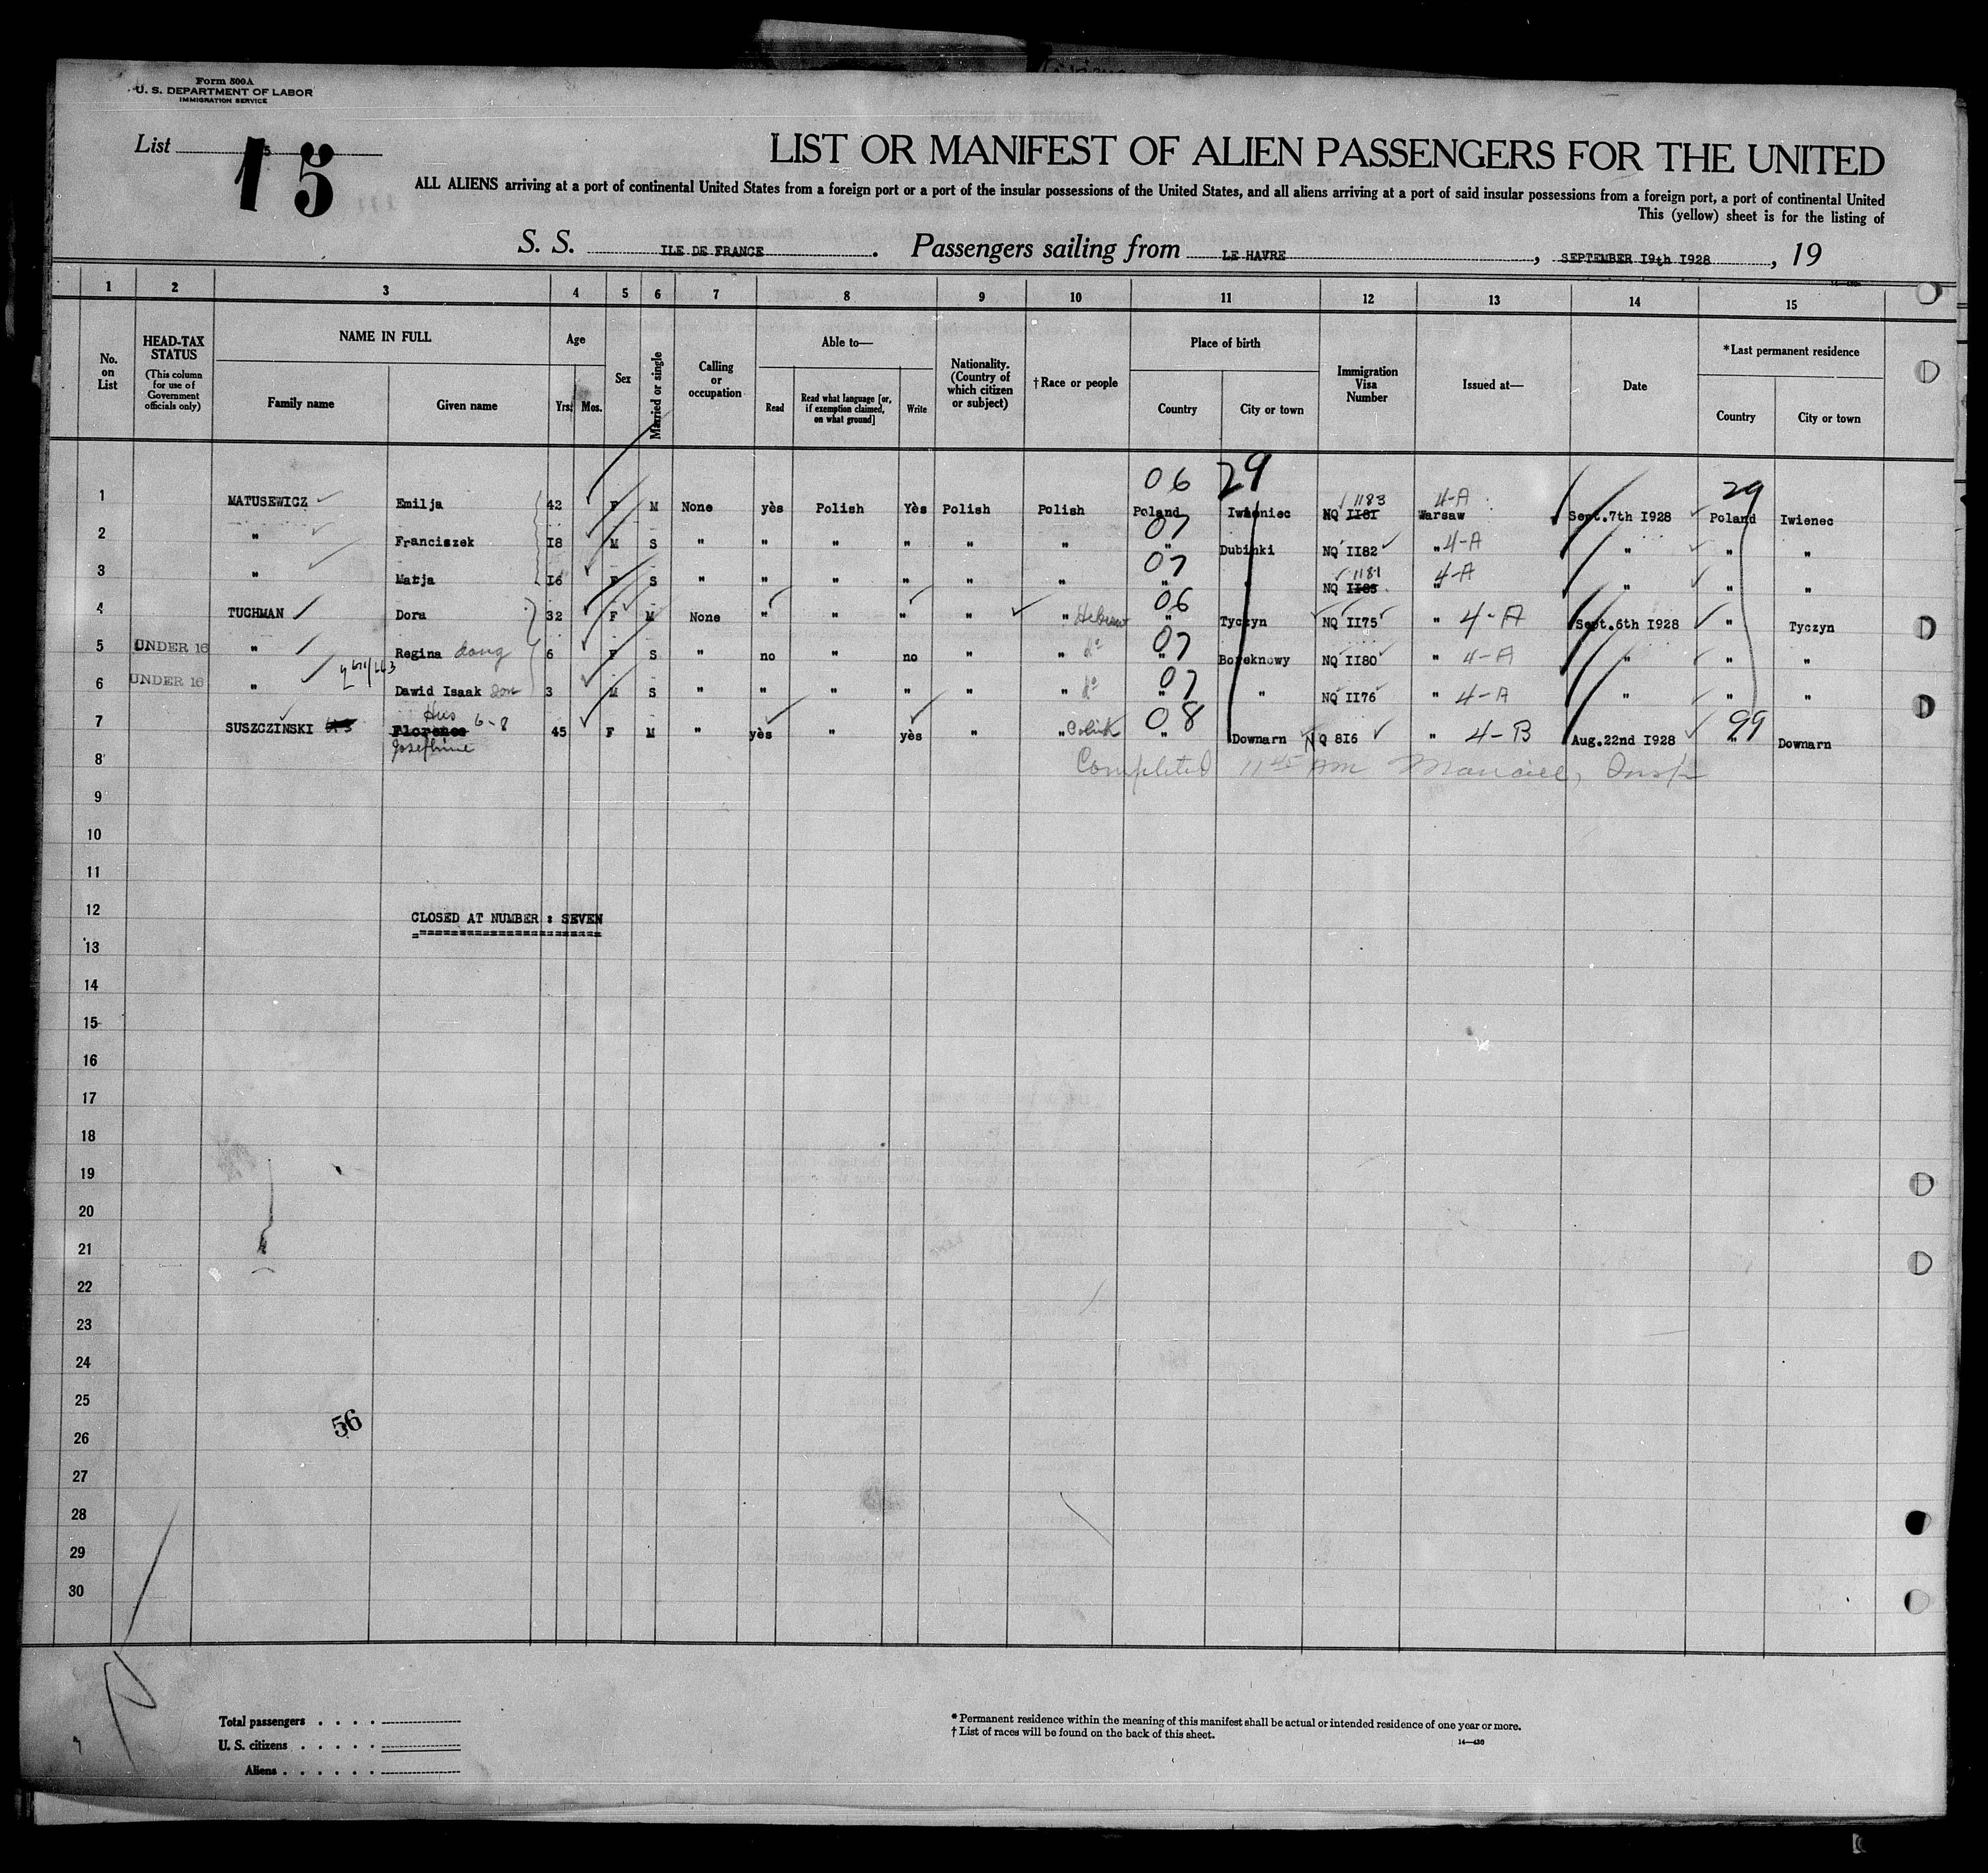 Form 500A
U. S. DEPARTMENT OF LABOR
IMMIGRATION SERVICE
List 5
15
LIST OR MANIFEST OF ALIEN PASSENGERS FOR THE UNITED
ALL ALIENS arriving at a port of continental United States from a foreign port or a port of the insular possessions of the United States, and all aliens arriving at a port of said insular possessions from a foreign port, a port of continental United
This (yellow) sheet is for the listing of
S. S. ILE DE FRANCE. Passengers sailing from LE HAVRE, SEPTEMBER I9th I928, 19
1 2 3 4 5 6 7 8 9 10 11 12 13 14 15
No. on List
HEAD-TAX STATUS
(This column for use of Government officials only)
NAME IN FULL
Family name
Given name
Age
Yrs.
Mos.
Sex
Married or single
Calling or occupation
Able to—
Read
Read what language [or, if exemption claimed, on what ground]
Write
Nationality. (Country of which citizen or subject)
†Race or people
Place of birth
Country
City or town
Immigration Visa Number
Issued at—
Date
*Last permanent residence
Country
City or town
06 29 1183 4-A 29
1 MATUSEWICZ Emilja 42 F M None yès Polish Yès Polish Polish Poland Iwieniec NQ II8I Warsaw Sept.7th I928 Poland Iwienec
07
2 " Franciszek I8 M S " " " " " " " Dubinki NQ II82 " 4-A " " "
07 1181 4-A
3 " Marja I6 F S " " " " " " " " NQ II83 " " " "
06
4 TUCHMAN Dora 32 F M None " " " " " Hebrew Tyczyn NQ II75 " 4-A Sept.6th I928 " Tyczyn
07
5 UNDER 16 " Regina 6 F S " no " no " " do " NQ II80 " 4-A " " "
07
6 UNDER 16 " Dawid Isaak son 3 M S " " " " " " do " " NQ II76 " 4-A " " "
Hus 6-8 08 99
7 SUSZCZINSKI Florence 45 F M " yès " yès " " " Downarn NQ 8I6 " 4-B Aug.22nd I928 " Downarn
Josephine
8 Completed 11 45 AM
9
10
11
12 CLOSED AT NUMBER : SEVEN
13
14
15
16
17
18
19
20
21
22
23
24
25
56
26
27
28
29
30
Total passengers
U. S. citizens
Aliens
* Permanent residence within the meaning of this manifest shall be actual or intended residence of one year or more.
† List of races will be found on the back of this sheet.
14—430